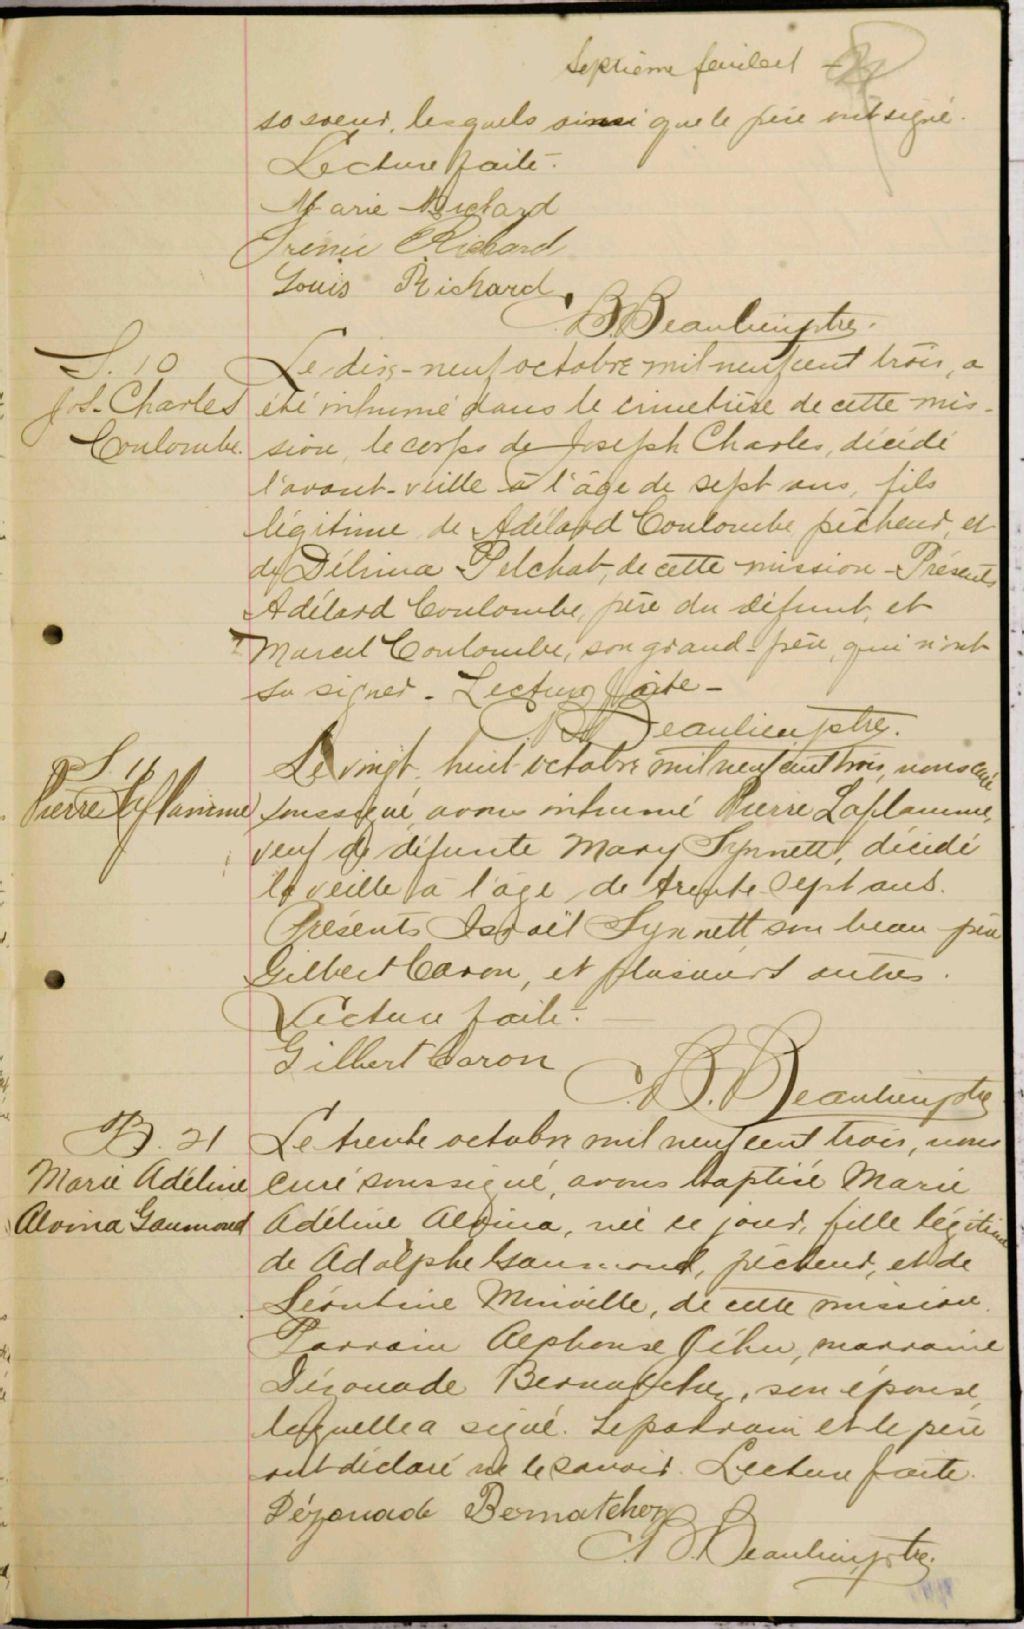 Septième feuillet
sa soeur, lesquels ainsi que le père ont signé.
Lecture faite.
Marie Richard
Irénée Richard
Louis Richard
Beaulieu, ptre.
S. 10
Jos. Charles
Coulombe.
Le dix-neuf octobre mil neuf cent trois, a
été inhumé dans le cimetière de cette mis-
sion, le corps de Joseph Charles, décédé
l'avant-veille à l'âge de sept ans, fils
légitime de Adélard Coulombe, pêcheur, et
de Délima Pelchat, de cette mission - Présents
Adélard Coulombe, père du défunt, et
Marcel Coulombe, son grand-père, qui n'ont
su signer - Lecture faite -
Beaulieu, ptre.
S 11
Pierre Laflamme
Le vingt huit octobre mil neuf cent trois, nous curé
soussigné, avons inhumé Pierre Laflamme,
veuf de défunte Mary Synnett, décédé
la veille à l'âge de trente sept ans.
Présents Israël Synnett, son beau père
Gilbert Caron, et plusieurs autres.
Lecture faite.
Gilbert Caron
B. Beaulieu, ptre
B. 21
Marie Adéline
Alvina Gaumond
Le trente octobre mil neuf cent trois, nous
curé soussigné, avons baptisé Marie
Adéline Alvina, née ce jour, fille légitime
de Adolphe Gaumond, pêcheur, et de
Léontine Minville, de cette mission.
Parrain Alphonse Géhu, marraine
Dézouade Bernatchez, son épouse,
laquelle a signé. Le parrain et le père
ont déclaré ne le savoir. Lecture faite.
Dézouade Bernatchez
B. Beaulieu, ptre.